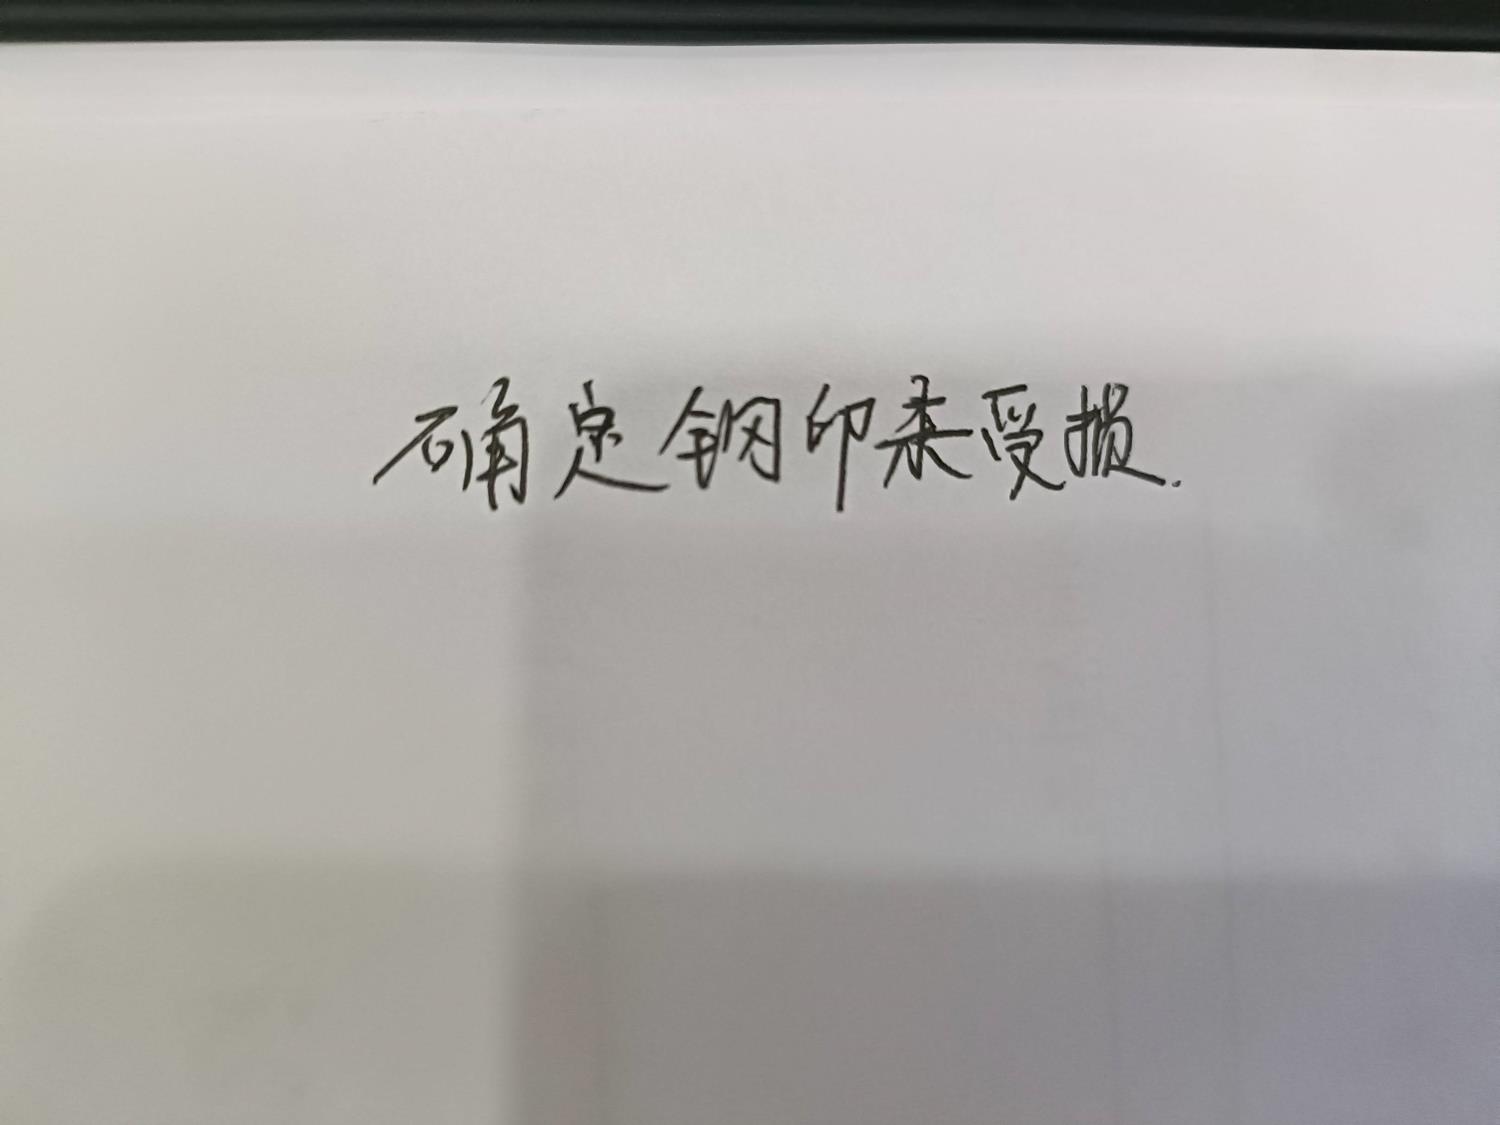 确定钢印未受损.